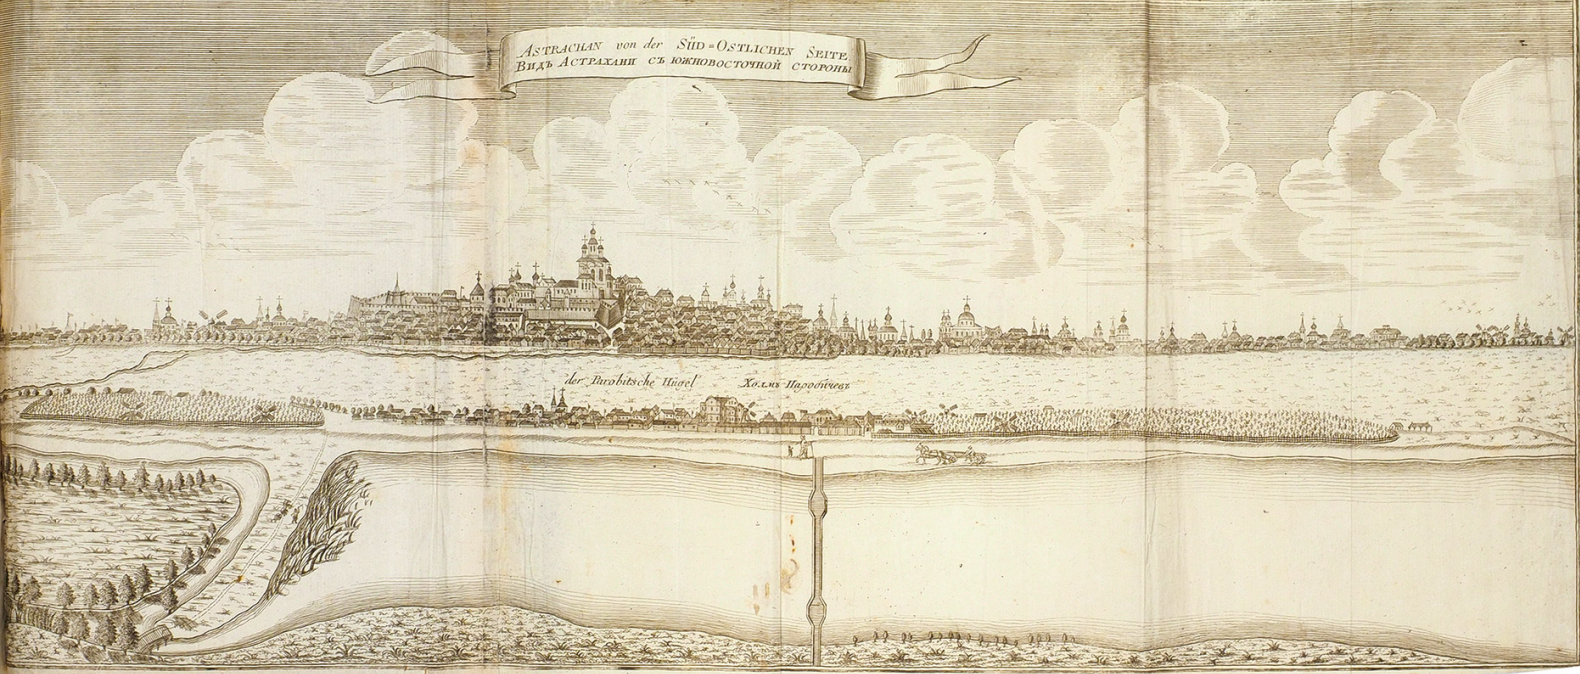 Astrachan von der Süd=Ostlichen Seite.
Видъ Астрахани съ южновосточной стороны
der Parobitsche Hügel Холмъ Паробичевъ